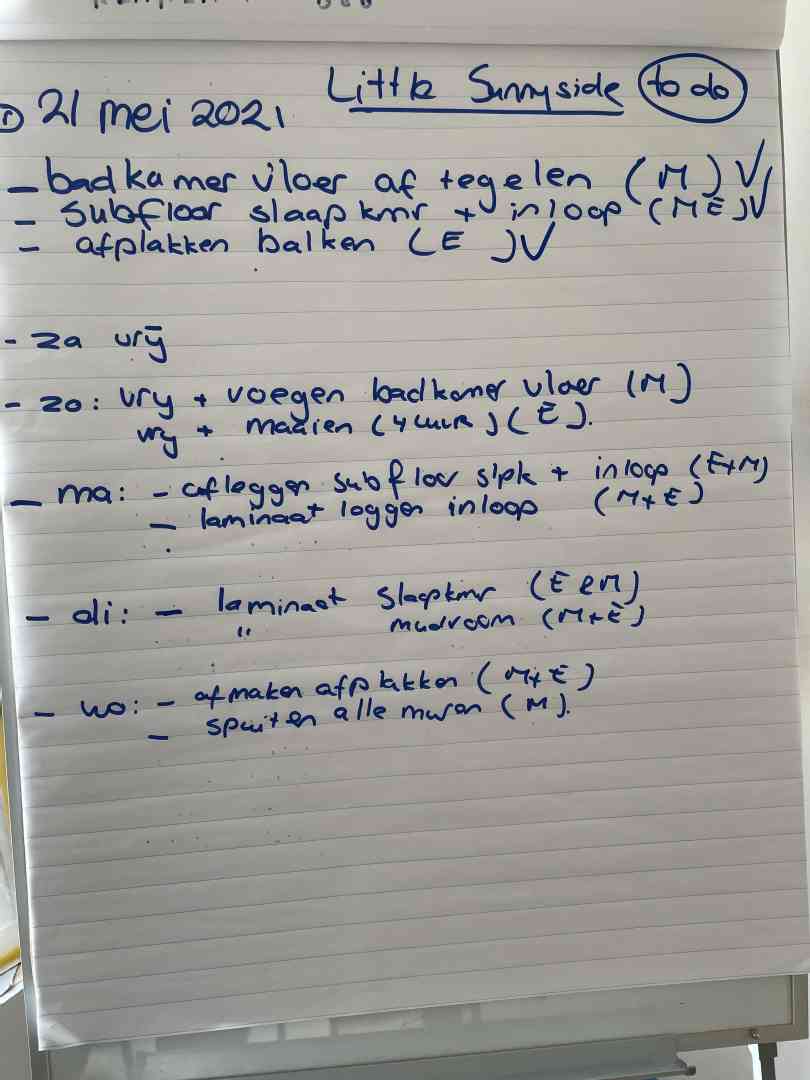 Little Sunnyside to do
21 mei 2021
- badkamer vloer af tegelen (M) √
- Subfloor slaapkmr + inloop (ME) √
- afplakken balken (E) √
- za vrij
- zo: vrij + voegen badkamer vloer (M)
vrij + maaien (4 uur) (E).
- ma: - afleggen subfloor slpk + inloop (E+M)
- laminaat leggen inloop (M+E)
- di: - laminaat slaapkmr (E e M)
" mudroom (M+E)
- wo: - afmaken afplakken (M+E)
- spuiten alle muren (M).